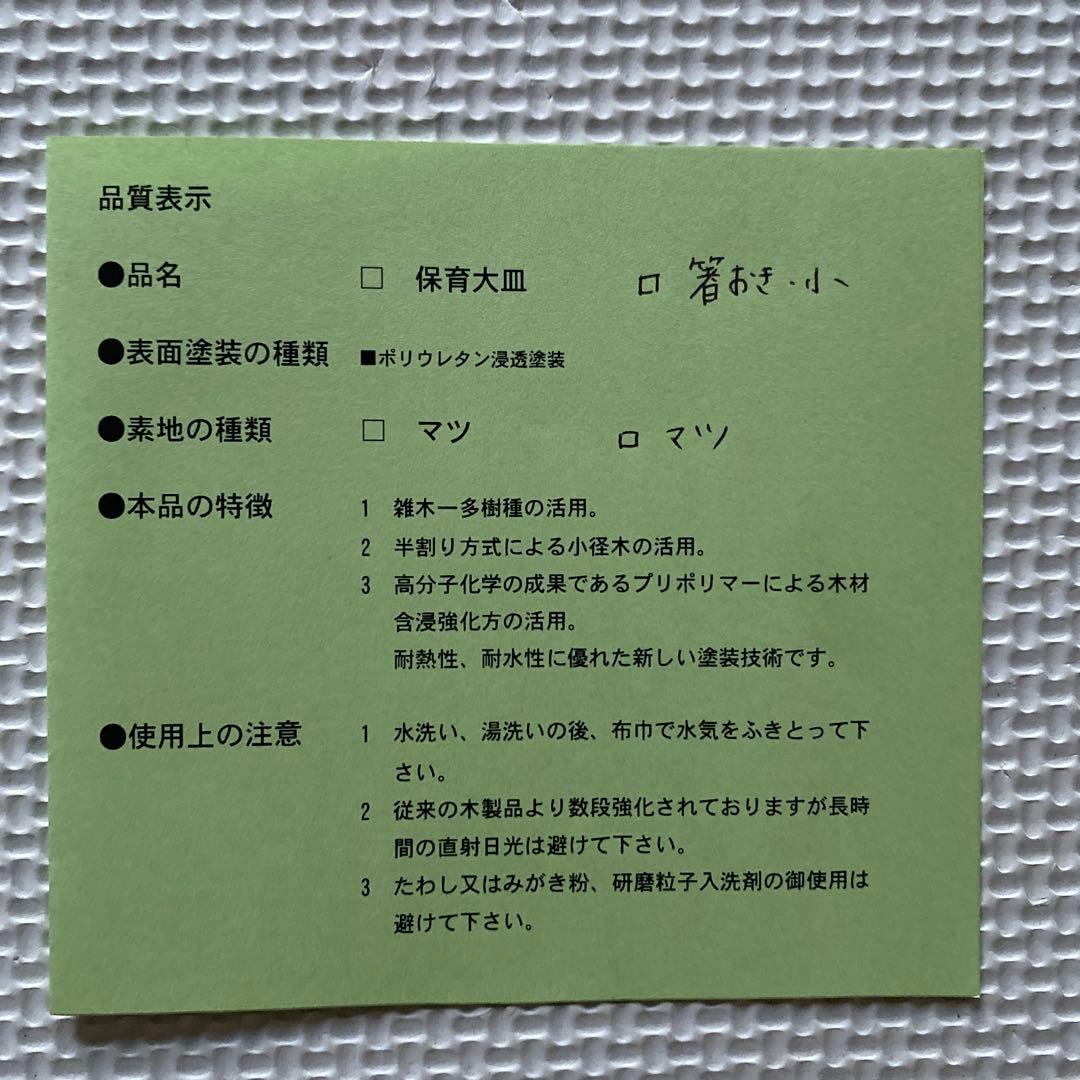 品質表示
●品名 □ 保育大皿 □ 箸おき・小
●表面塗装の種類 ■ポリウレタン浸透塗装
●素地の種類 □ マツ □ マツ
●本品の特徴 1 雑木一多樹種の活用。
2 半割り方式による小径木の活用。
3 高分子化学の成果であるプリポリマーによる木材
含浸強化方の活用。
耐熱性、耐水性に優れた新しい塗装技術です。
●使用上の注意 1 水洗い、湯洗いの後、布巾で水気をふきとって下
さい。
2 従来の木製品より数段強化されておりますが長時
間の直射日光は避けて下さい。
3 たわし又はみがき粉、研磨粒子入洗剤の御使用は
避けて下さい。